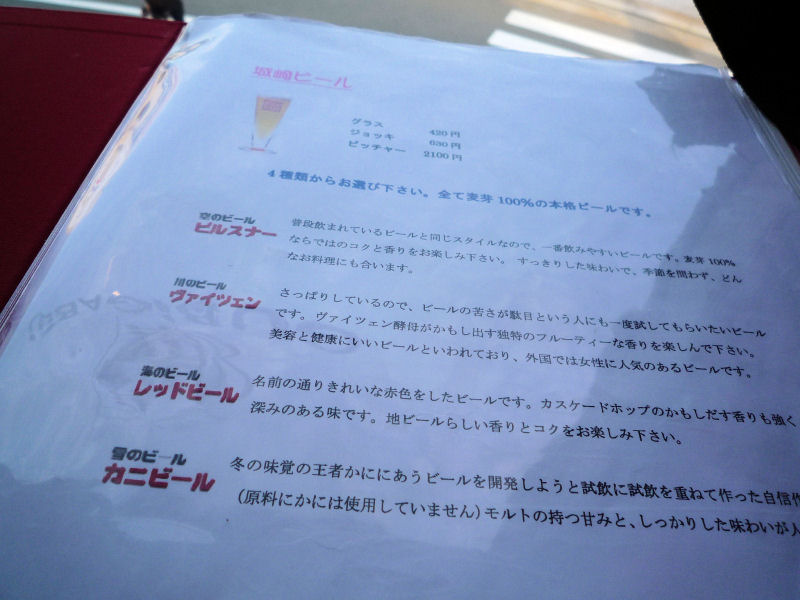 城崎ビール
グラス 420円
ジョッキ 630円
ピッチャー 2100円
4種類からお選び下さい。全て麦芽100%の本格ビールです。
空のビール
ピルスナー
普段飲まれているビールと同じスタイルなので、一番飲みやすいビールです。麦芽100%
ならではのコクと香りをお楽しみ下さい。すっきりした味わいで、季節を問わず、どん
なお料理にも合います。
川のビール
ヴァイツェン
さっぱりしているので、ビールの苦さが駄目という人にも一度試してもらいたいビール
です。ヴァイツェン酵母がかもし出す独特のフルーティーな香りを楽しんで下さい。
美容と健康にいいビールといわれており、外国では女性に人気のあるビールです。
海のビール
レッドビール
名前の通りきれいな赤色をしたビールです。カスケードホップのかもしだす香りも強く
深みのある味です。地ビールらしい香りとコクをお楽しみ下さい。
雪のビール
カニビール
冬の味覚の王者かににあうビールを開発しようと試飲に試飲を重ねて作った自信作
(原料にかには使用していません)モルトの持つ甘みと、しっかりした味わいが人